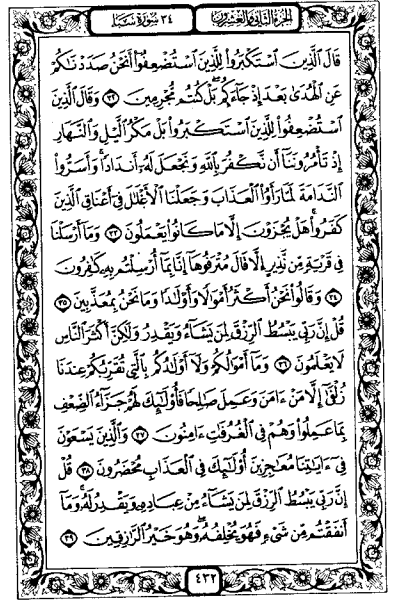 الجُزْءُ الثَّانِي وَالعِشْرُونَ ٣٤ سُورَةُ سَبَإ
قَالَ الَّذِينَ اسْتَكْبَرُوا لِلَّذِينَ اسْتُضْعِفُوا أَنَحْنُ صَدَدْنَاكُمْ
عَنِ الْهُدَىٰ بَعْدَ إِذْ جَاءَكُم بَلْ كُنتُم مُّجْرِمِينَ ٣٢ وَقَالَ الَّذِينَ
اسْتُضْعِفُوا لِلَّذِينَ اسْتَكْبَرُوا بَلْ مَكْرُ الَّيْلِ وَالنَّهَارِ
إِذْ تَأْمُرُونَنَا أَن نَّكْفُرَ بِاللَّهِ وَنَجْعَلَ لَهُ أَندَادًا وَأَسَرُّوا
النَّدَامَةَ لَمَّا رَأَوُا الْعَذَابَ وَجَعَلْنَا الْأَغْلَالَ فِي أَعْنَاقِ الَّذِينَ
كَفَرُوا هَلْ يُجْزَوْنَ إِلَّا مَا كَانُوا يَعْمَلُونَ ٣٣ وَمَا أَرْسَلْنَا
فِي قَرْيَةٍ مِّن نَّذِيرٍ إِلَّا قَالَ مُتْرَفُوهَا إِنَّا بِمَا أُرْسِلْتُم بِهِ كَافِرُونَ
٣٤ وَقَالُوا نَحْنُ أَكْثَرُ أَمْوَالًا وَأَوْلَادًا وَمَا نَحْنُ بِمُعَذَّبِينَ ٣٥
قُلْ إِنَّ رَبِّي يَبْسُطُ الرِّزْقَ لِمَن يَشَاءُ وَيَقْدِرُ وَلَٰكِنَّ أَكْثَرَ النَّاسِ
لَا يَعْلَمُونَ ٣٦ وَمَا أَمْوَالُكُمْ وَلَا أَوْلَادُكُم بِالَّتِي تُقَرِّبُكُمْ عِندَنَا
زُلْفَىٰ إِلَّا مَنْ ءَامَنَ وَعَمِلَ صَالِحًا فَأُولَٰئِكَ لَهُمْ جَزَاءُ الضِّعْفِ
بِمَا عَمِلُوا وَهُمْ فِي الْغُرُفَاتِ ءَامِنُونَ ٣٧ وَالَّذِينَ يَسْعَوْنَ
فِي ءَايَاتِنَا مُعَاجِزِينَ أُولَٰئِكَ فِي الْعَذَابِ مُحْضَرُونَ ٣٨ قُلْ
إِنَّ رَبِّي يَبْسُطُ الرِّزْقَ لِمَن يَشَاءُ مِنْ عِبَادِهِ وَيَقْدِرُ لَهُ وَمَا
أَنفَقْتُم مِّن شَيْءٍ فَهُوَ يُخْلِفُهُ وَهُوَ خَيْرُ الرَّازِقِينَ ٣٩
٤٣٢